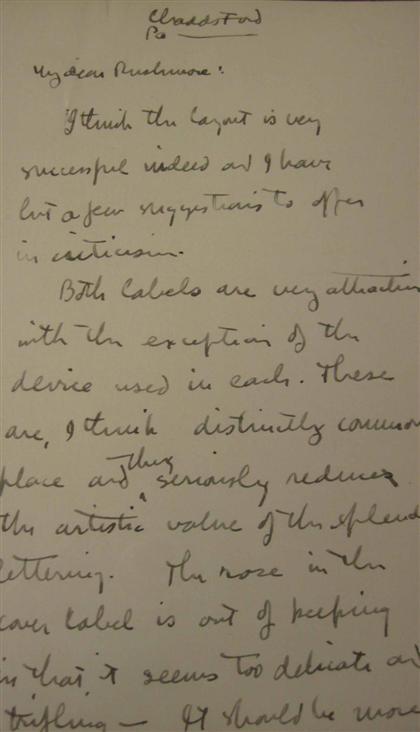 Chadds Ford
Pa
My dear Rushmore:
I think the layout is very
successful indeed and I have
but a few suggestions to offer
in criticism.
Both labels are very attractive
with the exception of the
device used in each. These
are, I think distinctly common
place and they seriously reduce
the artistic value of the splend
lettering. The rose in the
cover label is out of keeping
in that it seems too delicate and
trifling — It should be more